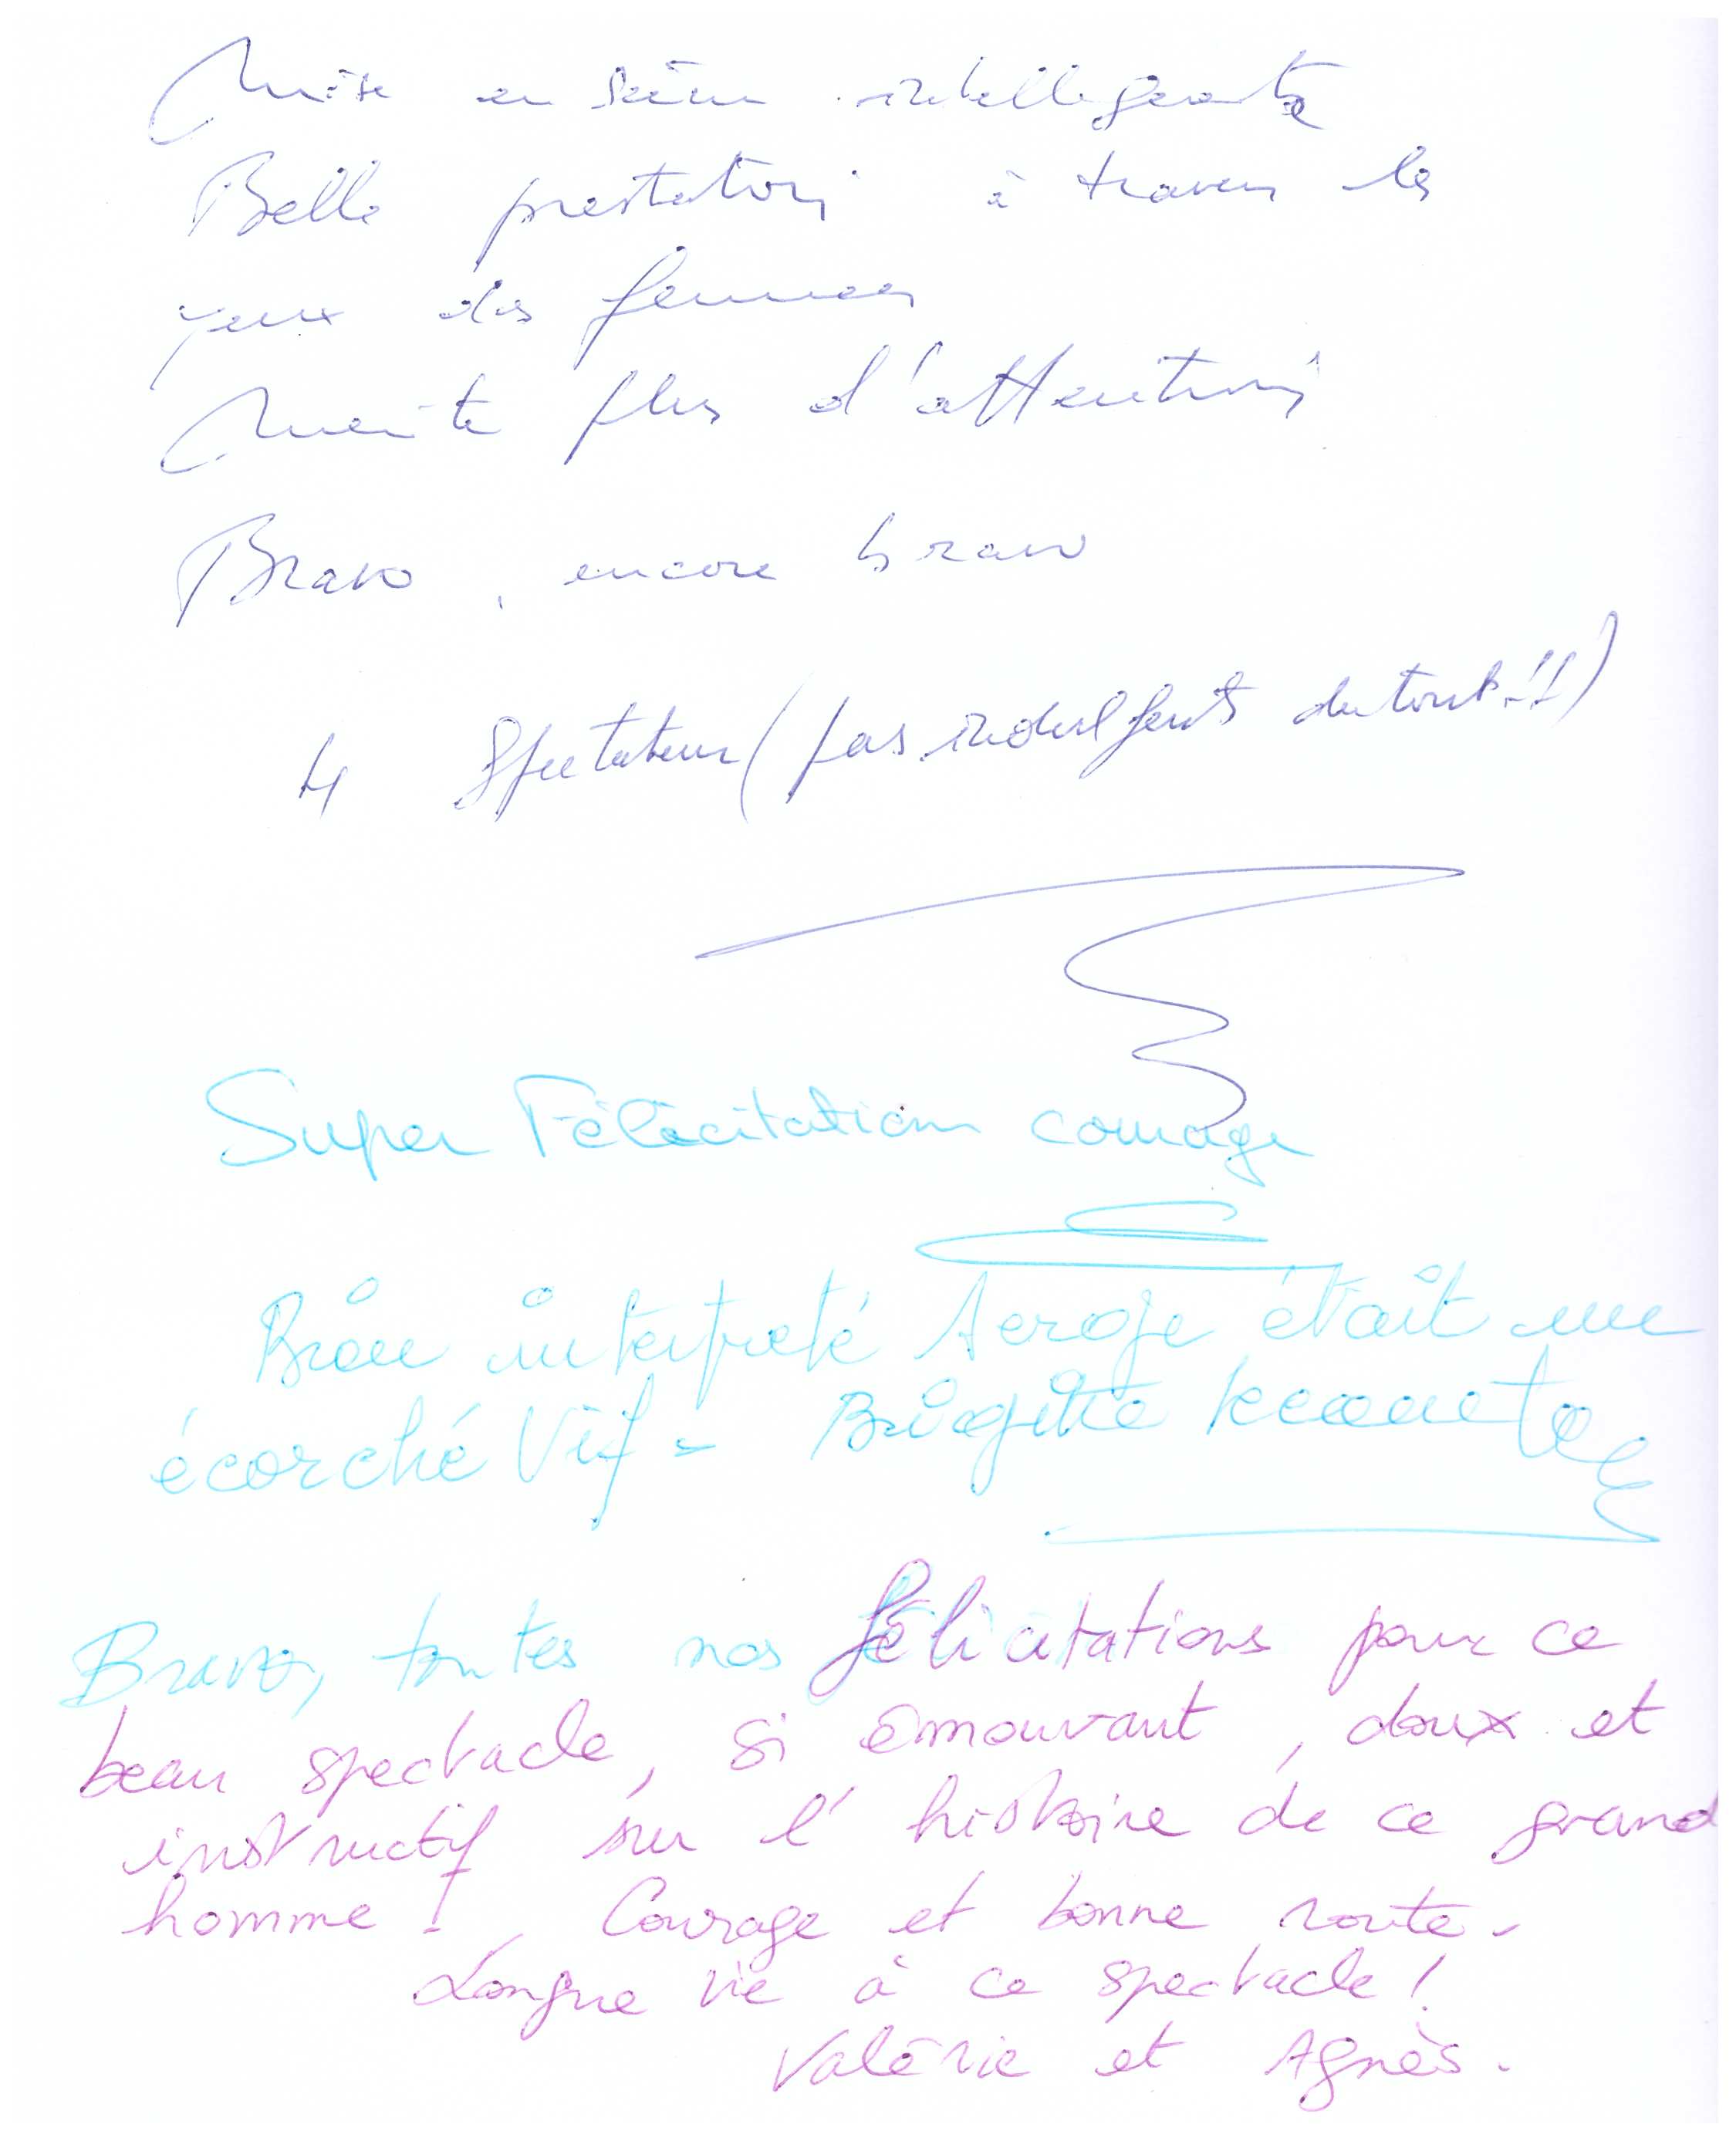 Mise en scène intelligente
Belle prestation à travers les
yeux des femmes
Mérite plus d'attention
Bravo, encore bravo
4 Spectateurs (pas indulgents du tout!!)
Super Félicitation courage
Bien interpreté Serge était un
écorché Vif - Brigitte
Bravo, toutes nos félicitations pour ce
beau spectacle, si émouvant, doux et
instructif sur l'histoire de ce grand
homme! Courage et bonne route.
Longue vie à ce spectacle!
Valérie et Agnès.